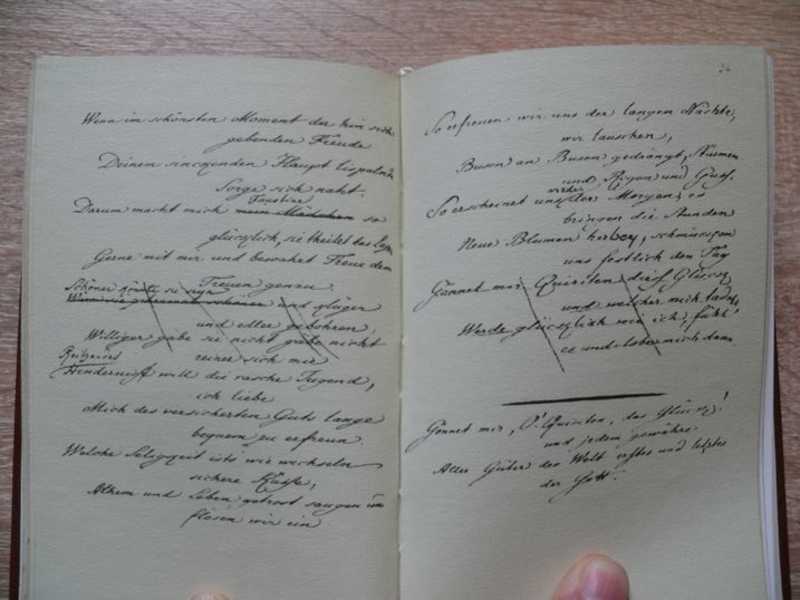 Wenn im schönsten Moment der hin sich
gebenden Freude
Deinem sinckenden Haupt lispelnd
Sorge sich naht.
Faustine
Darum macht mich mein Mädchen so
glücklich, sie theilet das Lager
Gerne mit mir und bewahrt Treue dem
Treuen genau.
Schöner sie
Wenn sie schöner und klüger
und edler gebohren,
Williger gäbe sie nicht gäbe nicht
reiner sich mir
Reitzendes
Hinderniß will die rasche Jugend,
ich liebe
Mich des versicherten Guts lange
bequem zu erfreun.
Welche Seligkeit ists wir wechseln
sichere Küsse,
Athem und Leben getrost saugen und
flösen wir ein
So erfreuen wir uns der langen Nächte,
wir lauschen,
Busen an Busen gedrängt, Stürmen
und Regen und Guss.
wieder
So erscheinet uns der Morgen, es
bringen die Stunden
Neue Blumen herbey, schmücken
uns festlich den Tag
Gönnet mir Quiriten dieß Glück
und welcher mich tadelt
Werde glücklich wie ich, fühl
es und lobe mich dann
Gönnet mir, O! Quiriten, das Glück!
und jedem gewähre
Aller Güter der Welt erstes und letztes
der Gott.